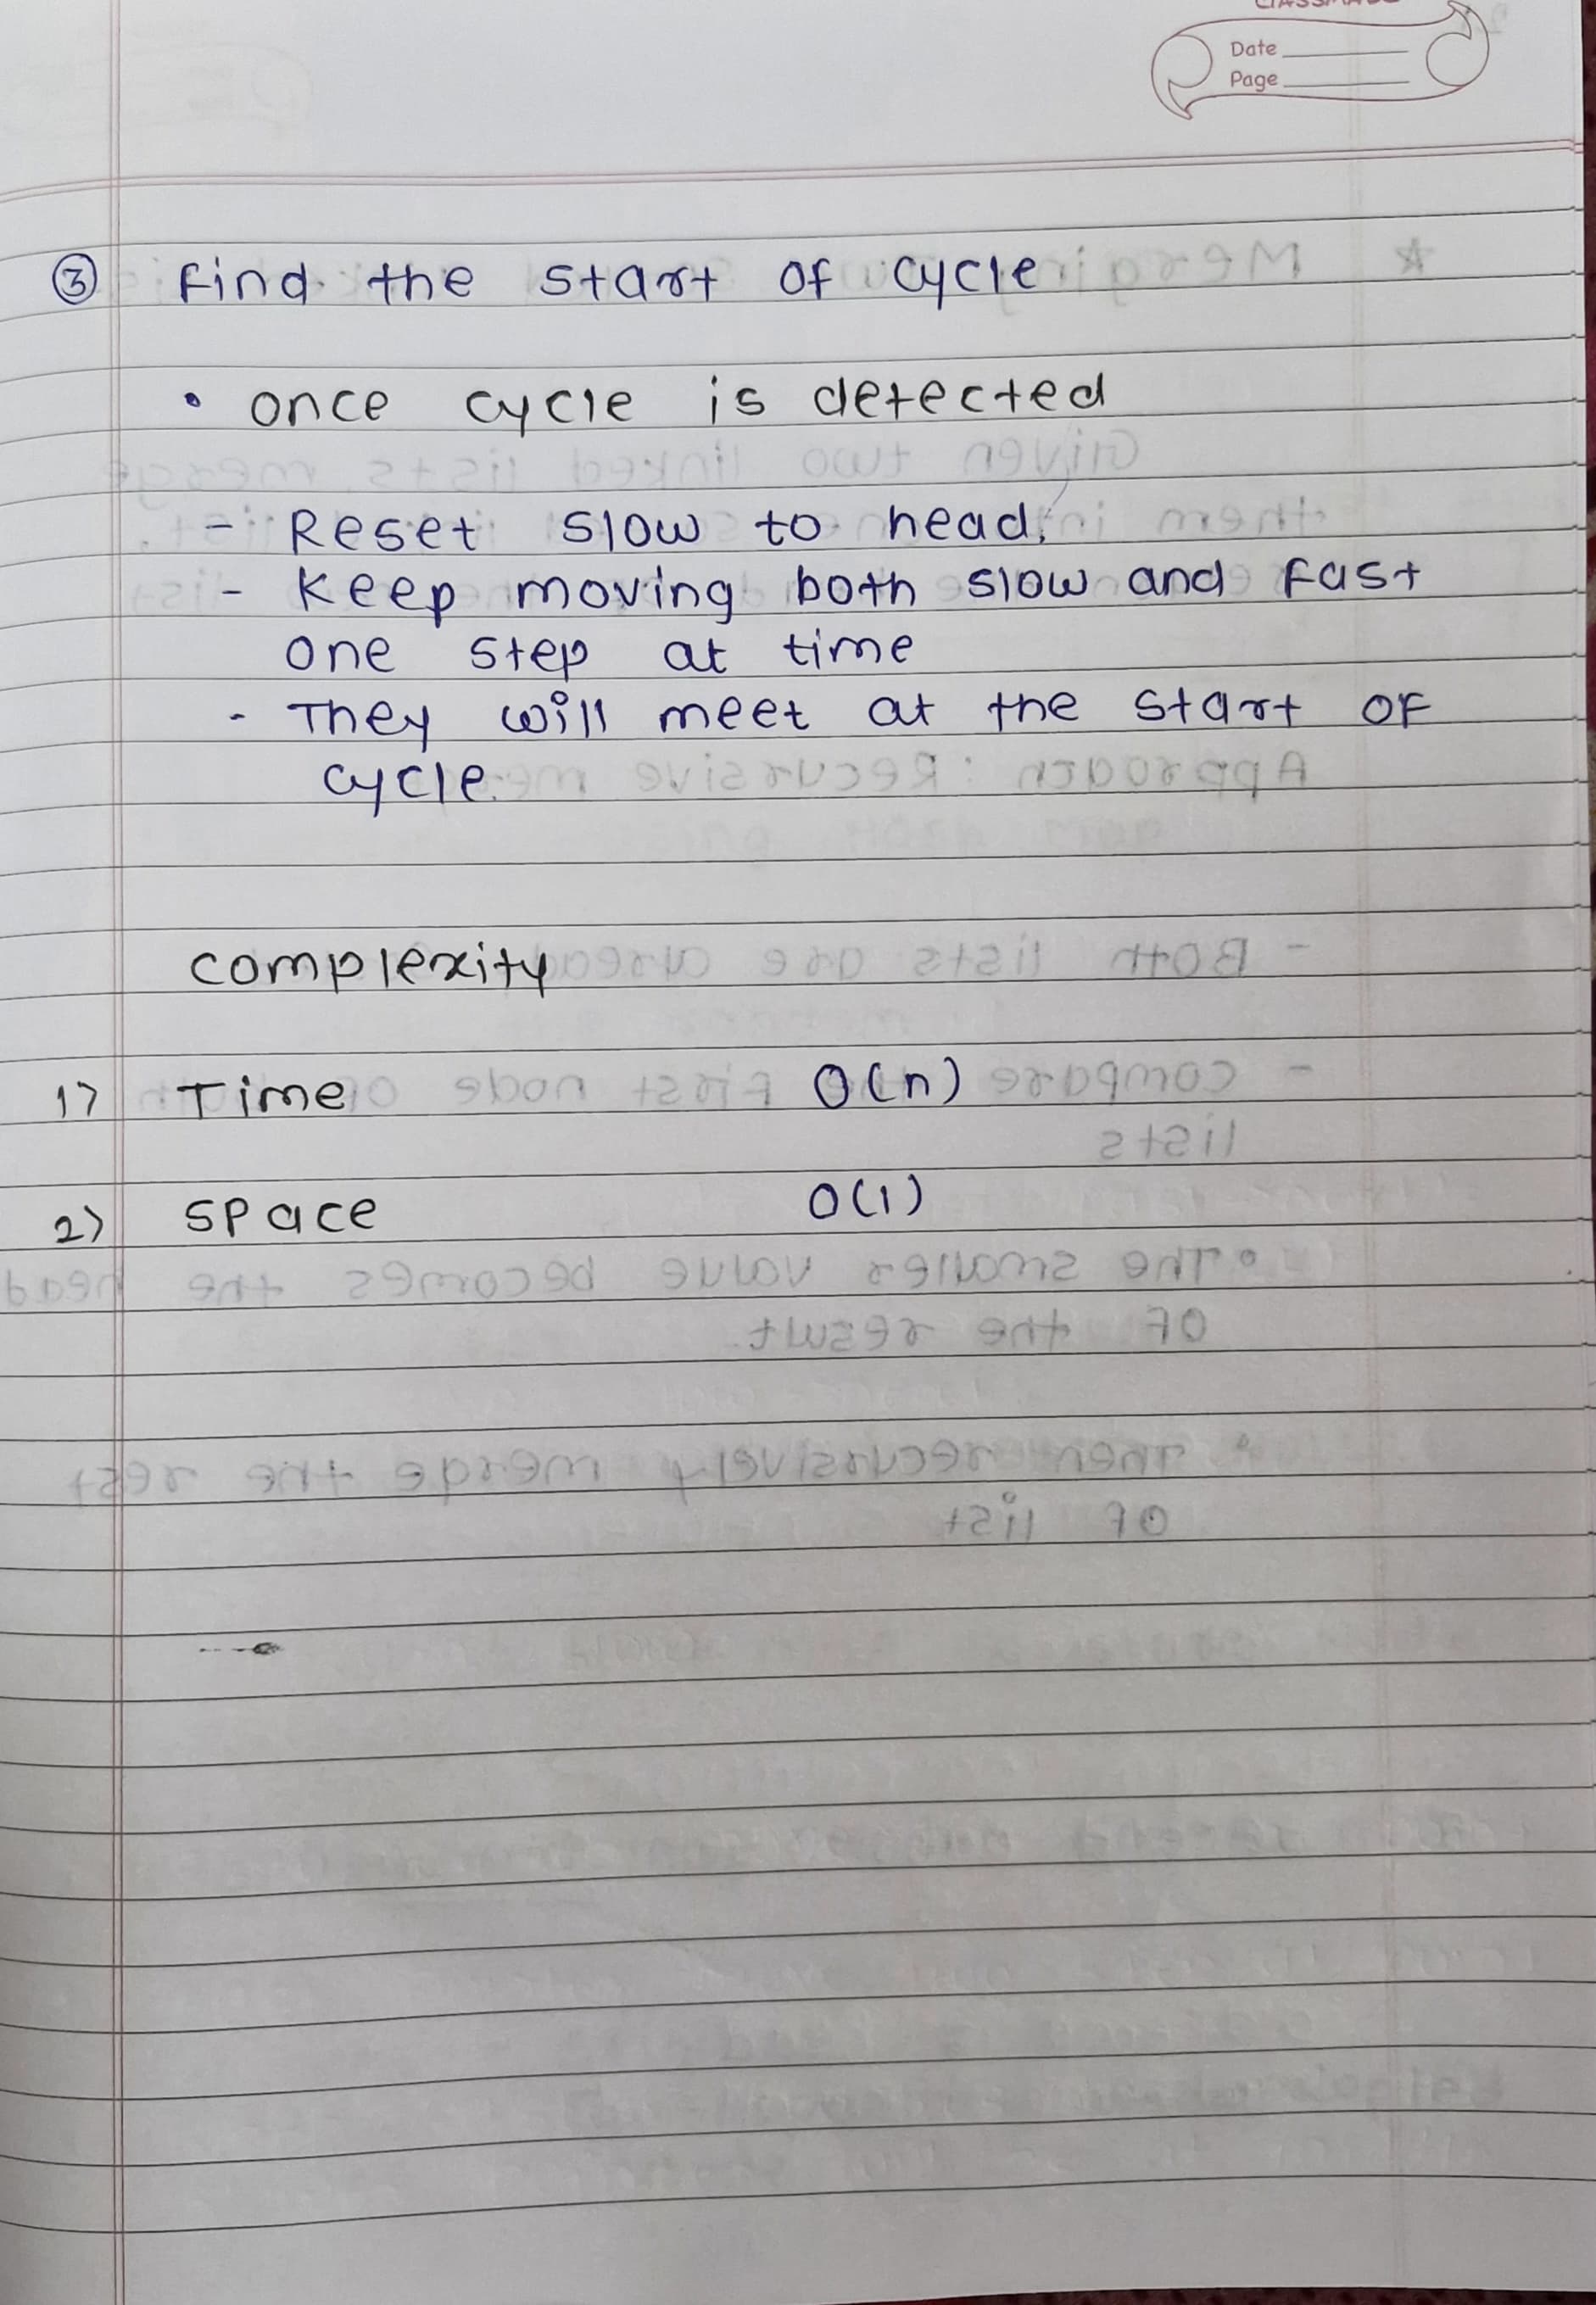 Date
Page
③ Find the start of cycle
• once cycle is detected
- Reset slow to head.
- Keep moving both slow and fast
one step at time
- They will meet at the start of
cycle.
complexity
1) Time O(n)
2) space O(1)